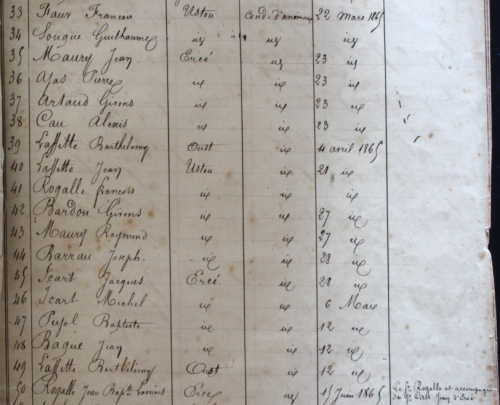 33 Faur Francois Ustou Cond. d'animaux 22 Mars 1865
34 Souque Guilhaume id id id
35 Maury Jean Ercé id 23 id
36 Ajas Pierre id id 23 id
37 Artaud Girons id id 23 id
38 Cau Alexis id id 23 id
39 Laffitte Barthélemy Oust id 4 avril 1865
40 Laffitte Jean Ustou id 21 id
41 Rogalle francois id id id
42 Bardou Girons id id 27 id
43 Maury Raymond id id 27 id
44 Barrau Joseph id id 28 id
45 Icart Jacques Ercé id 28 id
46 Icart Michel id id 6 Mai
47 Pujol Baptiste id id 12 id
48 Raque Jean id id 12 id
49 Laffitte Barthélemy Oust id 12 id
50 Rogalle Jean Bapte Ercé id 15 Juin 1865 Le Sr Rogalle est accompagné
du Sr Cau Jean d'Ercé